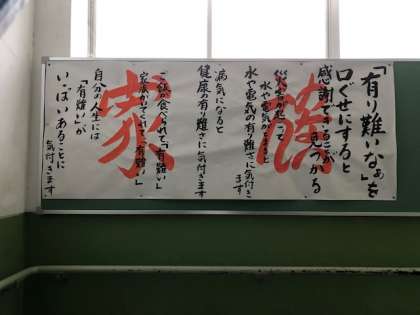 「有り難いなぁ」を
口ぐせにすると
感謝できることが
見つかる
災害が起こって
水や電気が止まると
水や電気の有り難さに気付き
ます
病気になると
健康の有り難さに気付きます
ご飯が食べられて「有難い」
家族がいてくれて「有難い」
自分の人生には
「有難い」が
いっぱいあることに
気付きます
家族